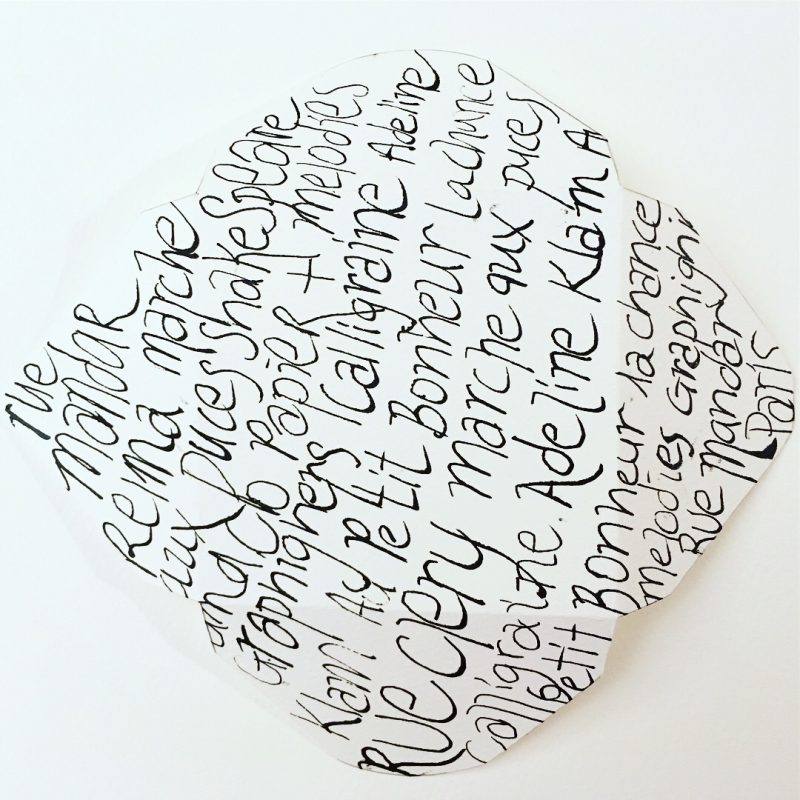 rue
Mandar
Remna marche
aux puces shakespeare
and Co papier + melodies
Graphigners Calligraine Adeline
Klam Au petit Bonheur la chance
Rue Clery marche aux puces
Calligraine Adeline Klam A
petit Bonheur la chance
melodies Graphigni
Rue Mandar
Paris